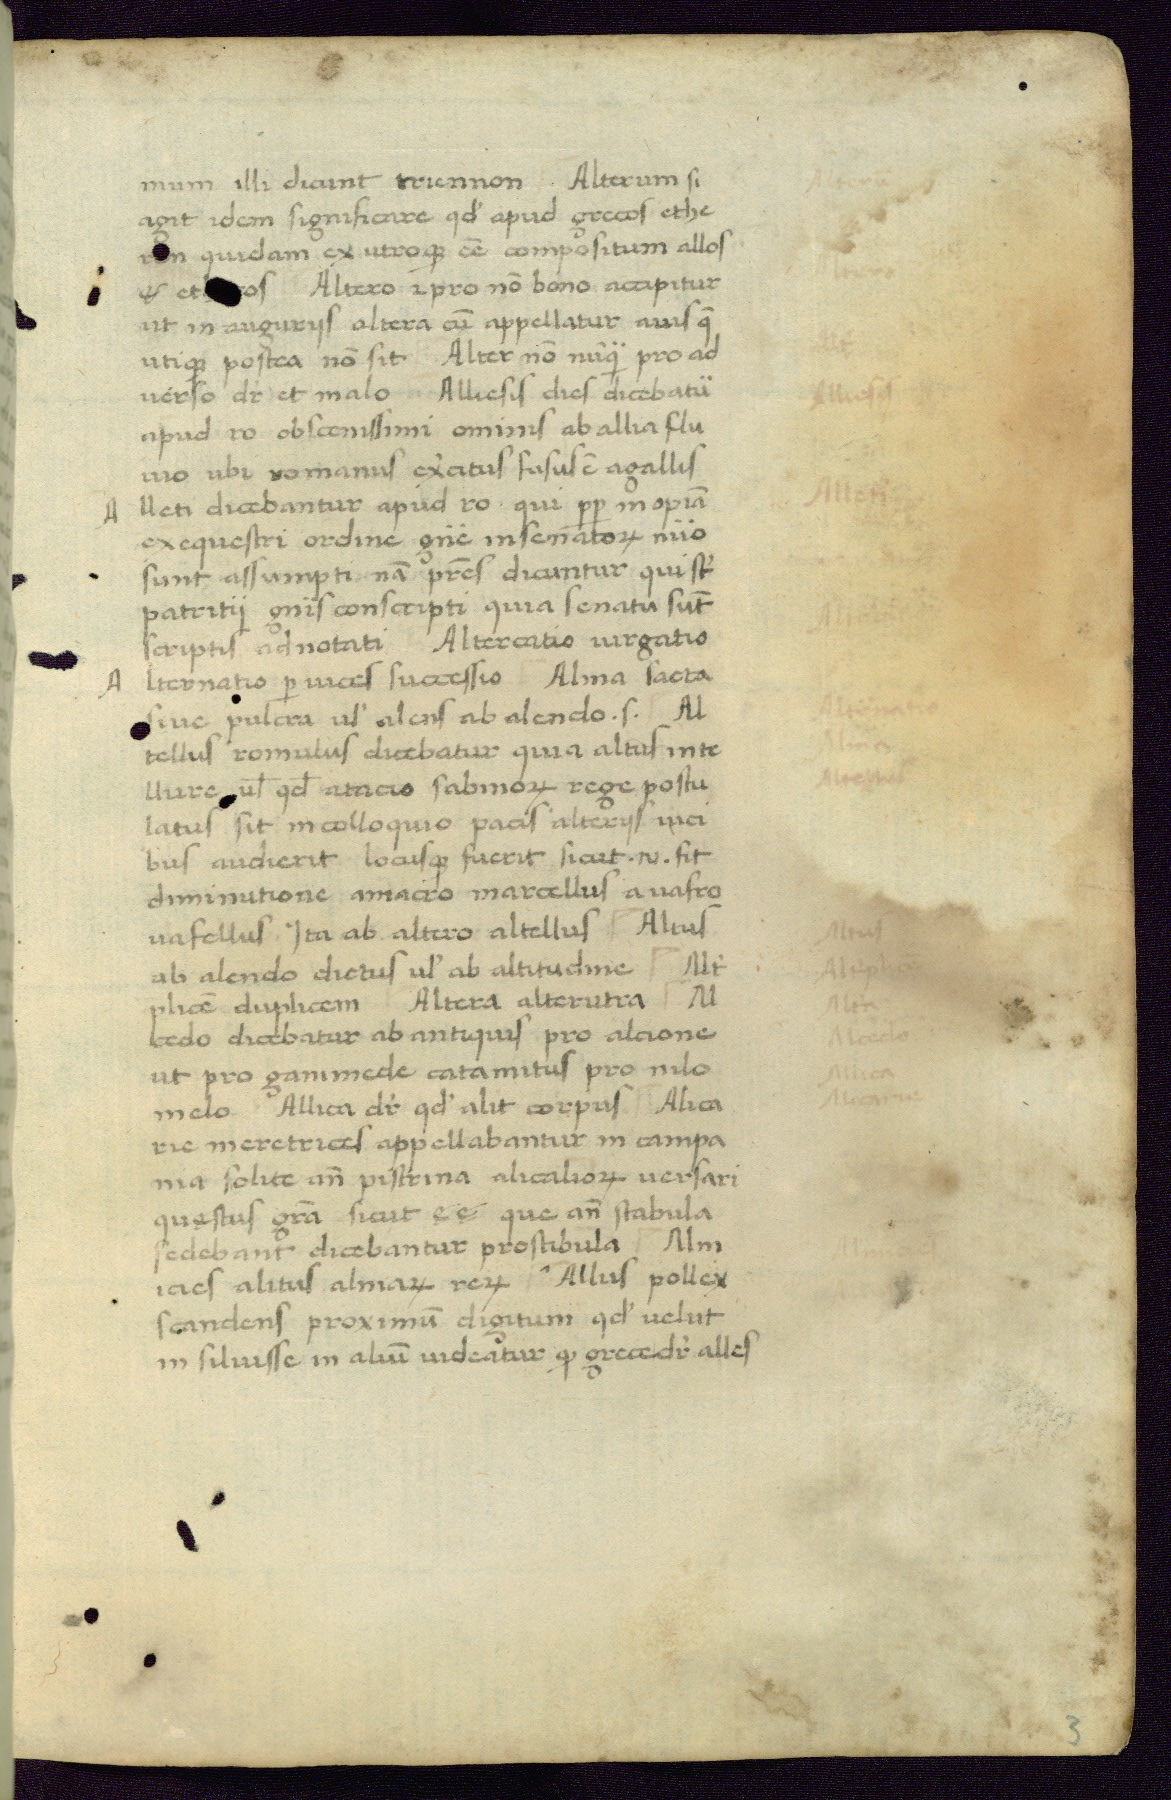 mum illi dicunt triennon . Alterum si
agit idem significare qd' apud grecos ethe
ron quidam ex utroqꝫ cē compositum allos
& et ros Altero ⁊ pro nō bono accipitur
ut in augurijs altera cū appellatur auis q̄
utiqꝫ postea nō sit Alter nō nūq̄ pro ad
uerso dr̄ et malo Alliesis dies dicebatū
apud ro obscenissimi ominis ab allia flu
uio ubi romanus excitus fusus ē agallis
A lleti dicebantur apud ro . qui pp̄ inopiā
ex equestri ordine gn̄e in senatoꝝ nūo
sunt assumpti nā pr̄es dicuntur qui st̄
patritij gn̄is conscripti quia senatu sūt
scriptis adnotati Altercatio iurgatio
A lternatio ꝑ uices successio Alma sacra
siue pulcra ul' alens ab alendo .s. Al
tellus romulus dicebatur quia altus in te
llure ul' qd' atacio sabinoꝝ rege postu
latus sit in colloquio pacis alterijs uici
bus audierit locusqꝫ fuerit sicut .N. fit
diminutione amacro marcellus a uafro
uafellus Ita ab altero altellus Altus
ab alendo dictus ul' ab altitudine Alt̄
plicē duplicem Altera alterutra Al
cedo dicebatur ab antiquis pro alcione
ut pro ganimede catamitus pro nilo
melo Allica dr̄ qd' alit corpus Alica
rie meretrices appellabantur in campa
nia solite an̄ pistrina alicalioꝝ uersari
questus grā sicut ę ę que an̄ stabula
sedebant dicebantur prostibula Alm
icies alitus almaꝝ reꝝ Allus pollex
scandens proximū digitum qd' uelut
in siluisse in aliū uideatur qꝫ grece dr̄ alles
Alliesis
Alleti
Alternatio
Alma
Altellus
Altus
Altiplicē
Alcedo
Allica
Alicarie
3